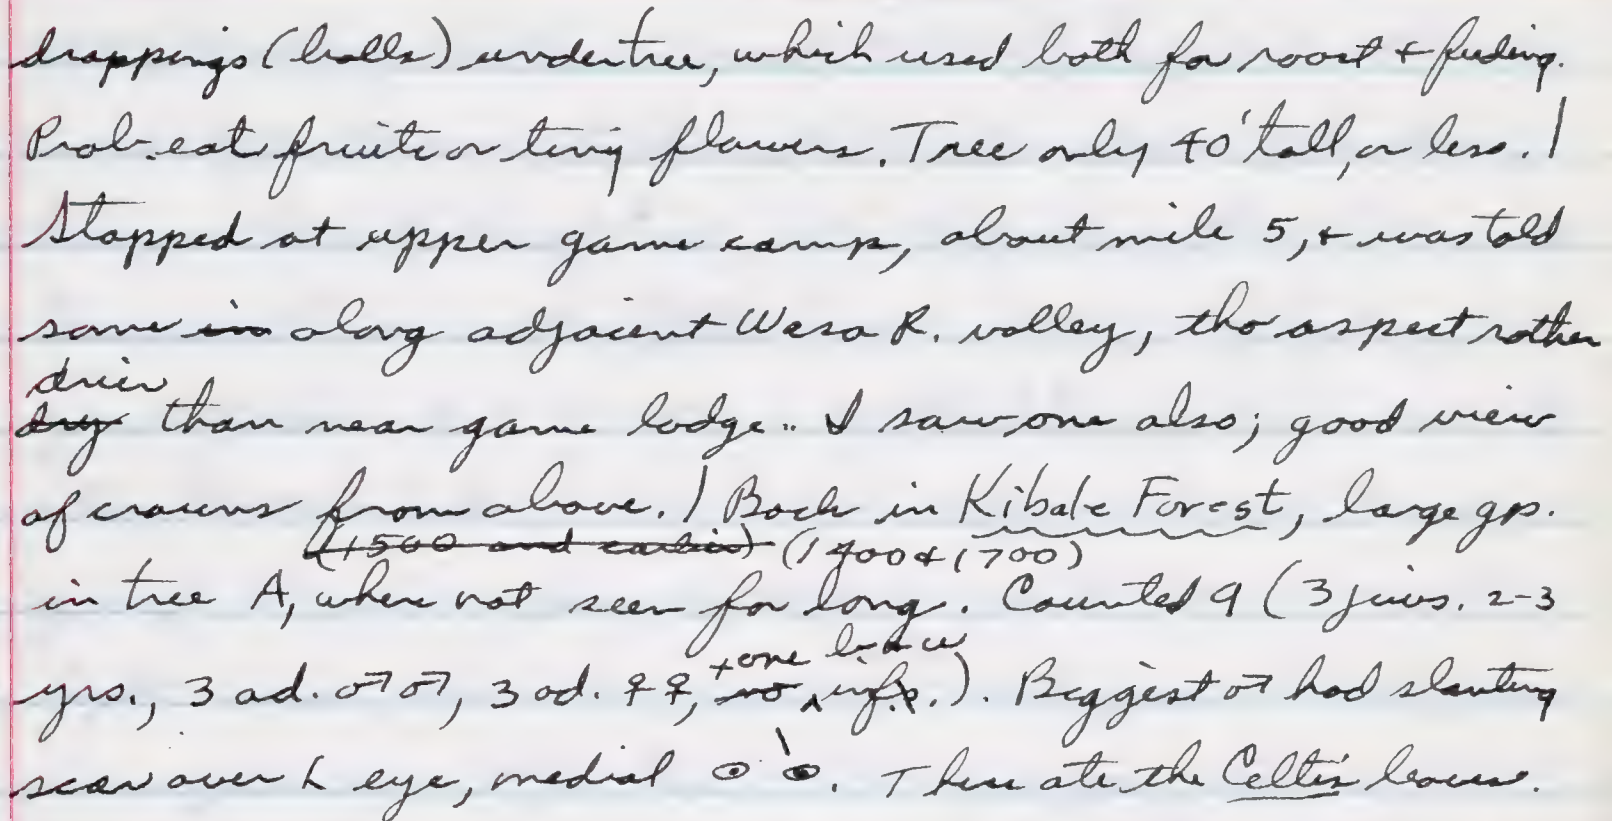 droppings (balls) under tree, which used both for roost + feeding.
Prob. eat fruits or tiny flowers. Tree only 40' tall, or less. /
Stopped at upper game camp, about mile 5, + was told
same in along adjacent Wasa R. valley, tho aspect rather
drier
dry than near game lodge.. I saw one also; good view
of crowns from above. / Back in Kibale Forest, large gp.
(1500 and earlier) (1400 + 1700)
in tree A, where not seen for long. Counted 9 (3 juvs. 2-3
+ one below
yrs., 3 ad. ♂♂, 3 ad. ♀♀, no ^ infs.). Biggest ♂ had slanting
scar over L eye, medial ⊙ \ ⊙. These ate the Celtis leaves.